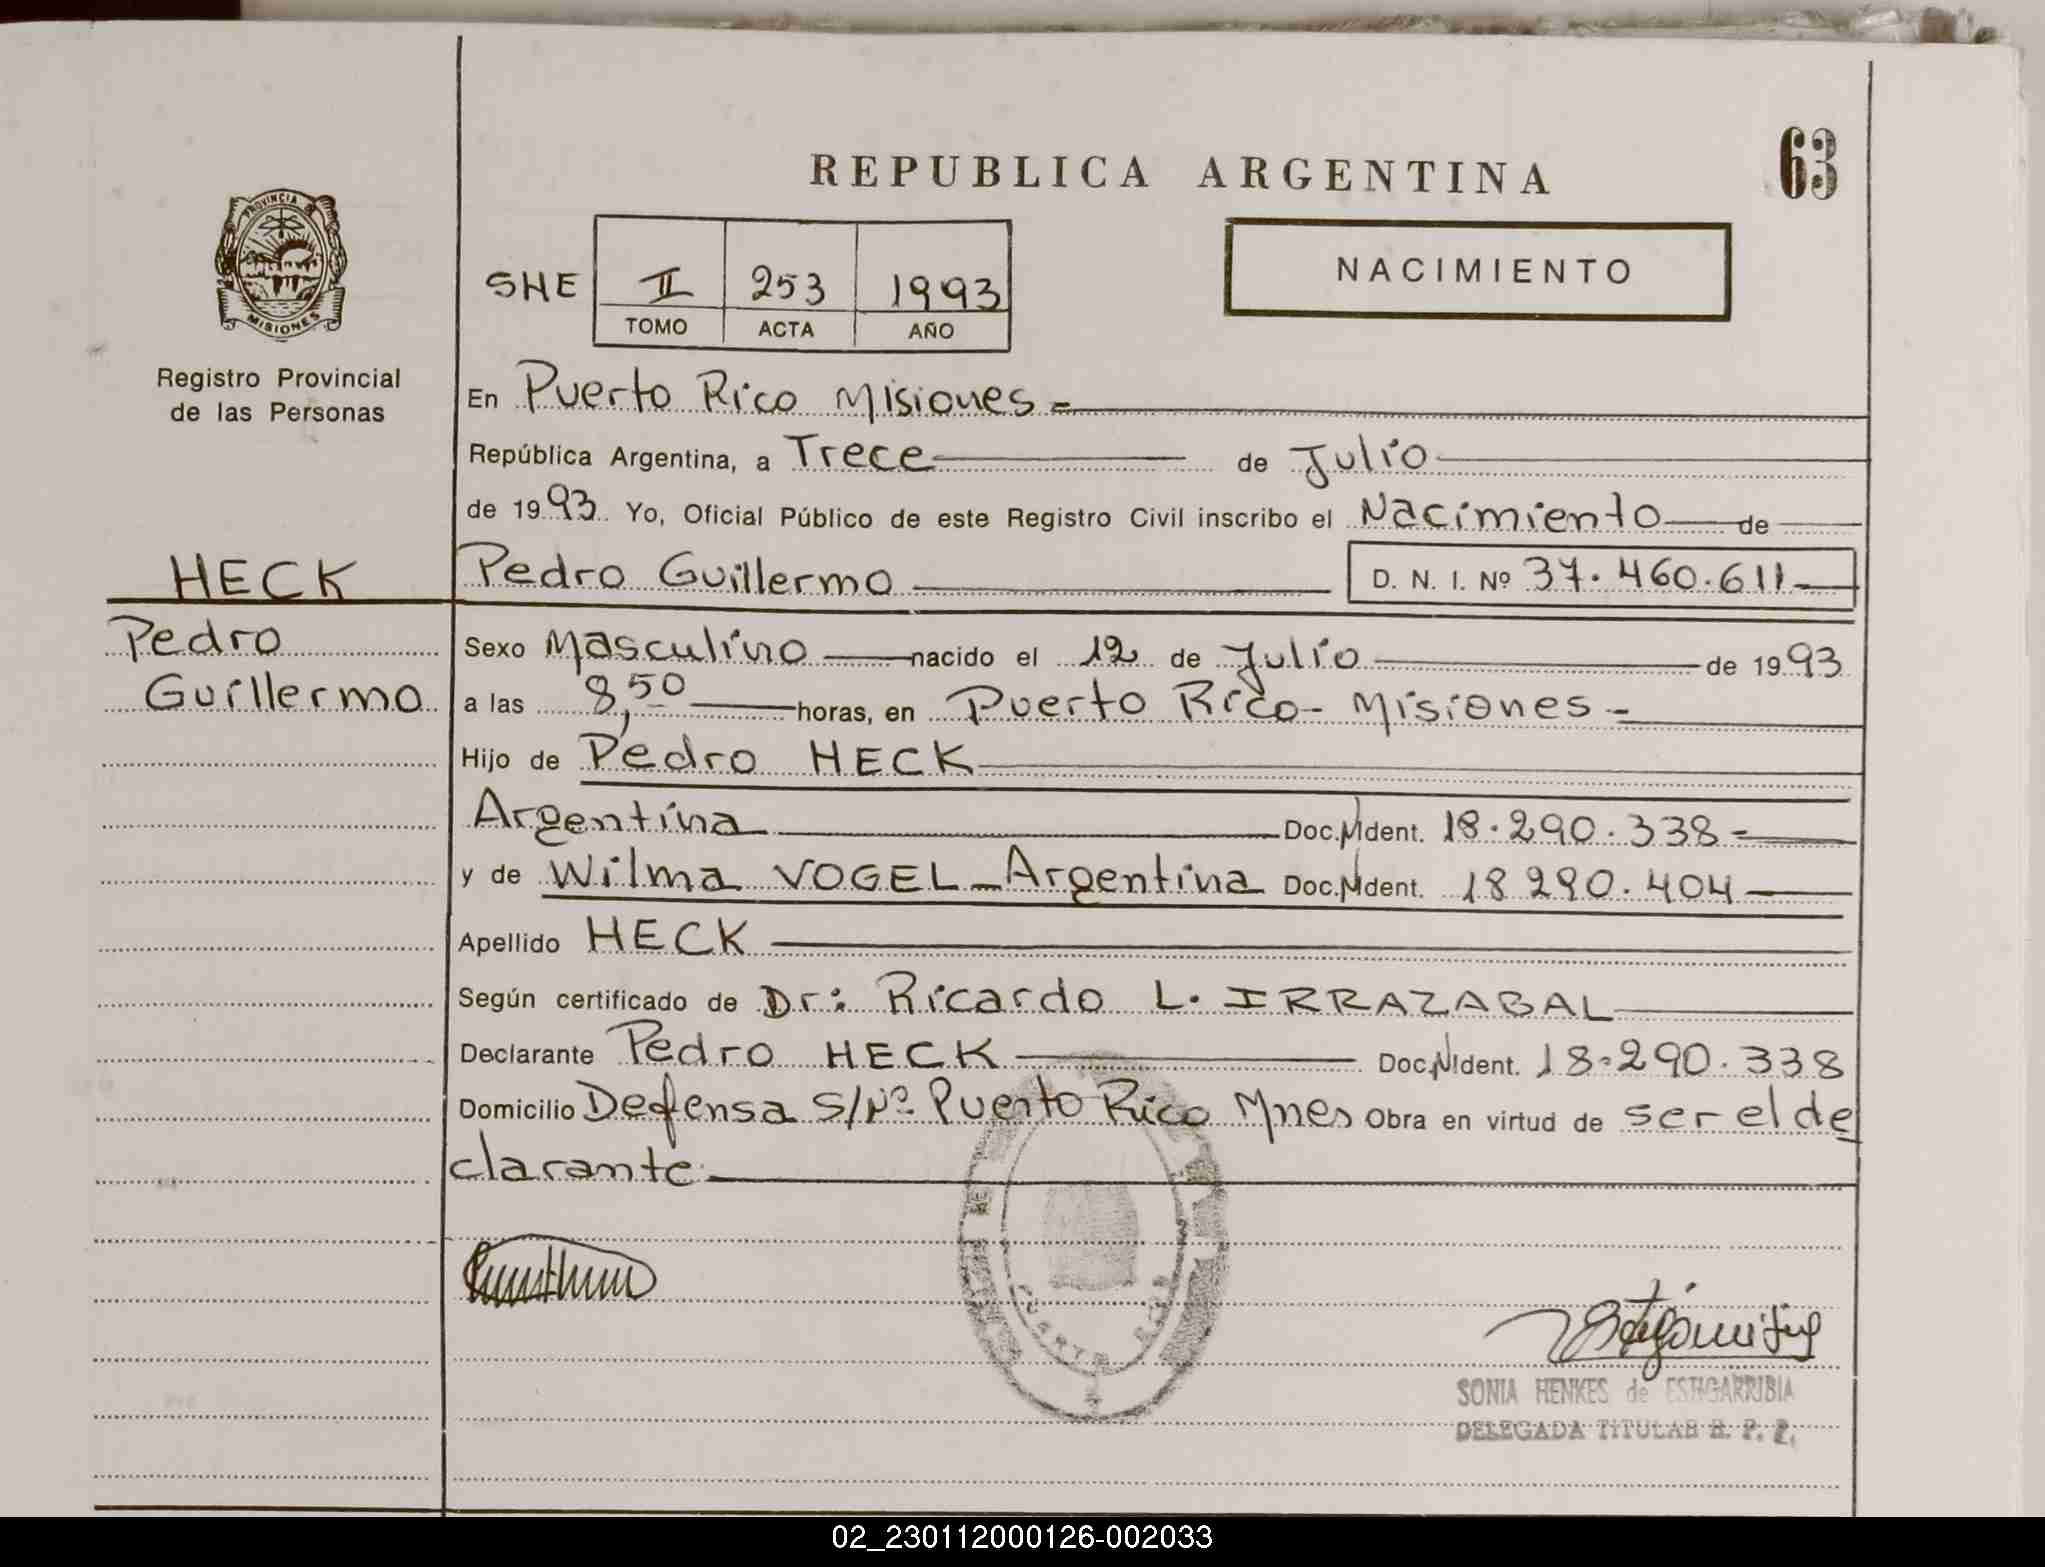 63
REPUBLICA ARGENTINA
PROVINCIA DE
MISIONES
Registro Provincial
de las Personas
SHE II 253 1993
TOMO ACTA AÑO
NACIMIENTO
En Puerto Rico Misiones =
República Argentina, a Trece de Julio
de 1993 Yo, Oficial Público de este Registro Civil inscribo el Nacimiento de
HECK Pedro Guillermo D. N. I. Nº 37.460.611
Pedro Sexo Masculino nacido el 12 de Julio de 1993
Guillermo a las 8,50 horas, en Puerto Rico - Misiones -
Hijo de Pedro HECK
Argentina Doc. N Ident. 18.290.338 =
y de Wilma VOGEL - Argentina Doc. N Ident. 18 290.404
Apellido HECK
Según certificado de Dr: Ricardo L. IRRAZABAL
Declarante Pedro HECK Doc. N Ident. 18.290.338
Domicilio Defensa S/Nº Puerto Rico Mnes Obra en virtud de ser el de
clarante
SONIA HENKES de ESTIGARRIBIA
DELEGADA TITULAR R. P. P.
02_230112000126-002033